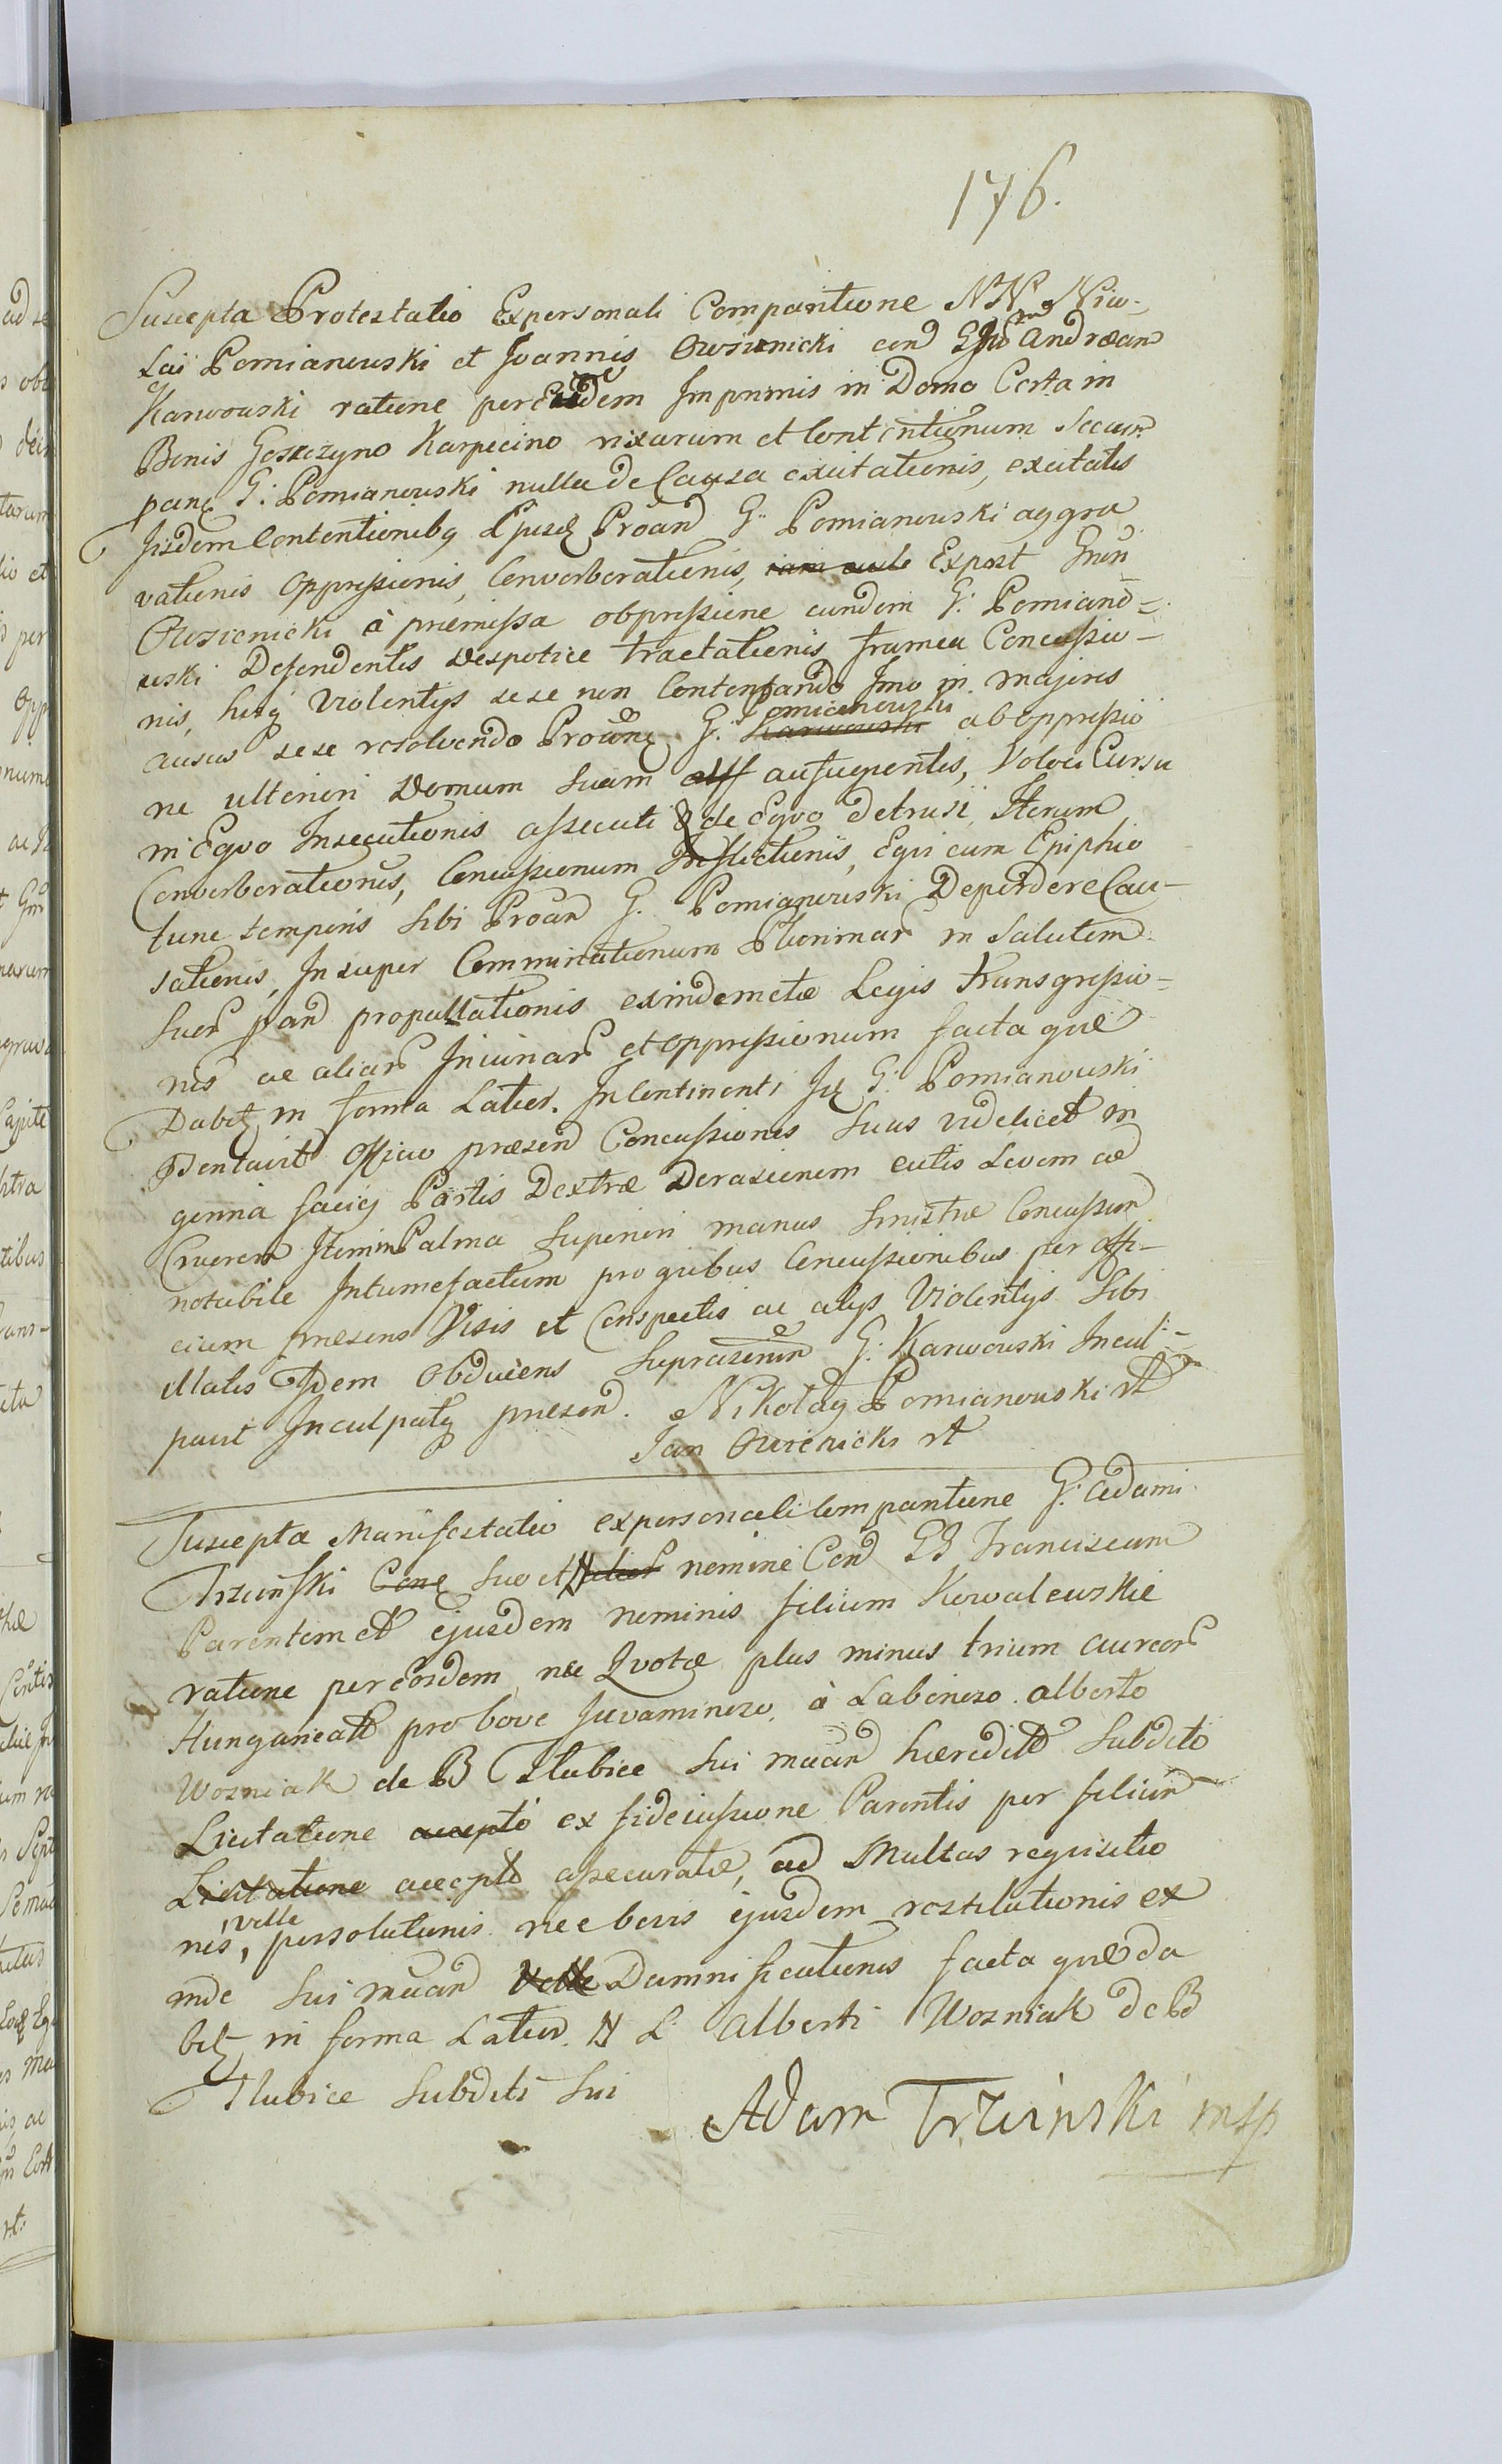 176.
Suscepta Protestatio Expersonali Comparitione NN Nico-
Lai Pomianowski et Joannis Owsienicki con Andræam
Karwowski ratione per Eundem Imprimis in Domo Certa in
Bonis Goszczyno Karpecino rixarum et Contentionum
G: Pomianowski nulla de Causa excitationis, excitatis
Iisdem Contentionibq Ejusd Proand G: Pomianowski aggra
vationis Oppressionis, Converberationis, Expost
Owsienicki à præmissa obpressione eundem G: Pomiano-
wski Defendentis despotice tractationis framea Concussio-
nis, hisq Violentys sese non Contentando Imo in majores
ausus sese resolvendo G: Pomianowski Karwowski ab oppressio
ne ulteriori Domum Suam auf aufugientis, Veloci Cursu
in Eqvo Insecutionis assecuti & de Eqvo detrusi, Iterum
Converberationis, Concussionum Inflictionis, Eqvi cum Ephipio
tunc temporis Sibi Proand G. Pomianowski Deperdere Cau-
sationis, Insuper Comminationum Plurimar in Salutem
Suam propallationis exindemetæ Legis transgressio-
nis ac aliar Iniuriar et oppressionum facta quæ
Dabit in forma Latior. In Continenti G: Pomianowski
Officio præsen Concussiones Suas videlicet in
Partis Dextræ Derasionem cutis Levem ac
Cruorem Item in Palma Superiori manus Sinistræ Concussion
notabile Intumefactum pro quibus Concussionibus per offi-
cium præsens Visis et Conspectis ac alys Violentys Sibi
Illatis Idem Obducens G: Karwowski Incul-
pavit Inculpatq præsen. Nikołay Pomianowski
Jan Owsienicki
Suscepta Manifestatio expersonali Comparitione G: Adami
Trzcinski Suo et N nomine Con GG Franciscum
Parentem et ejusdem nominis filium Kowalewskie
ratione per eosdem nec Qvotæ plus minus trium aureor
Hungarical pro bove Juvaminoso, à Laborioso Alberto
Wozniak de B Tlubice Sui hæredit Subdito
Licitatione accepto ex fideiussione Parentis per filium
Licitatione accepto assecuratæ, ad Multas requisitio
nes, velle persolutionis nec bovis ejusdem restitutionis ex
inde Sui Velle Damnificationis facta quæ da
bit in forma Latior. N L Alberti Wozniak de B
Tlubice Subditi Sui
Adam Trzcinski mp